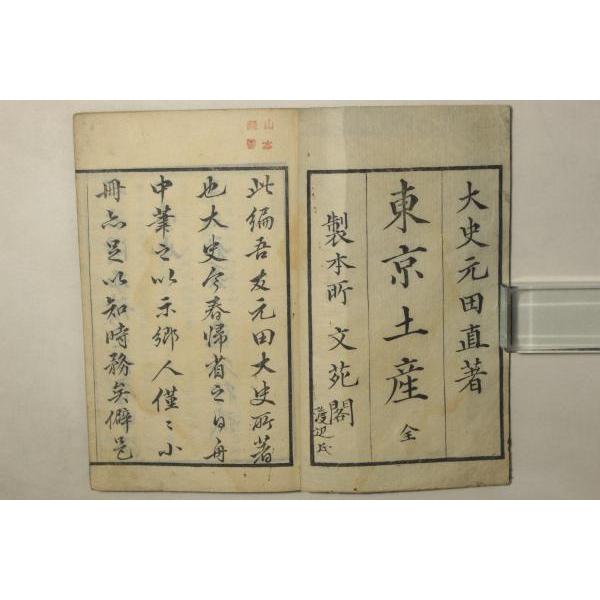 大史元田直著
東京土産 全
製本所 文苑閣
渡辺氏
山本
此編吾友元田大史所著
也大史今春帰省之日舟
中筆之以示郷人僅〻小
冊亦足以知時務矣僻邑